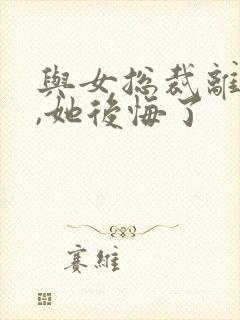 與女總裁離
,她後悔了
賽維